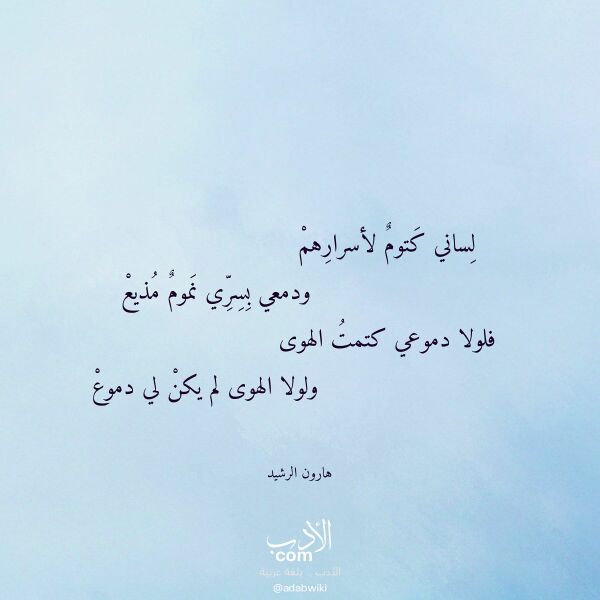 لِساني كَتومٌ لأسرارِهمْ
ودمعي بِسِرِّي نَمومٌ مُذيعْ
فلولا دموعي كتمتُ الهوى
ولولا الهوى لم يكنْ لي دموعْ
هارون الرشيد
الأدب
com
الأدب .. بلغة عربية
@adabwiki